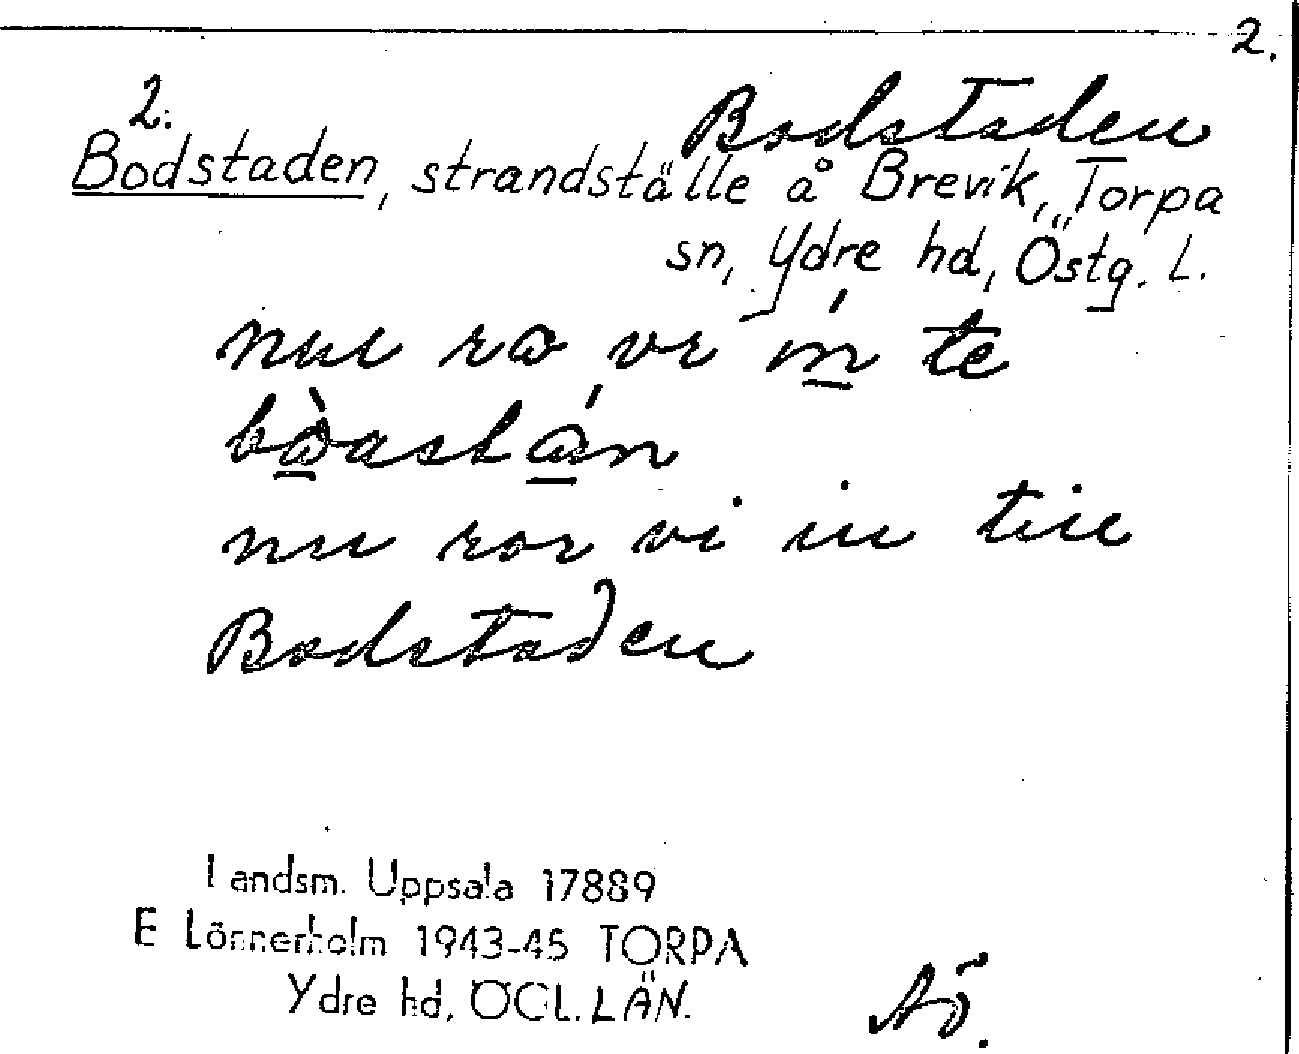 2.
2.
Bodstaden
Bodstaden, strandställe å Brevik, Torpa
sn, Ydre hd, Östg. L.
nu vi in te
nu ror vi in till
Bodstaden
Landsm. Uppsala 17889
E Lönnerholm 1943-45 TORPA
Ydre hd. ÖGL. LÄN.